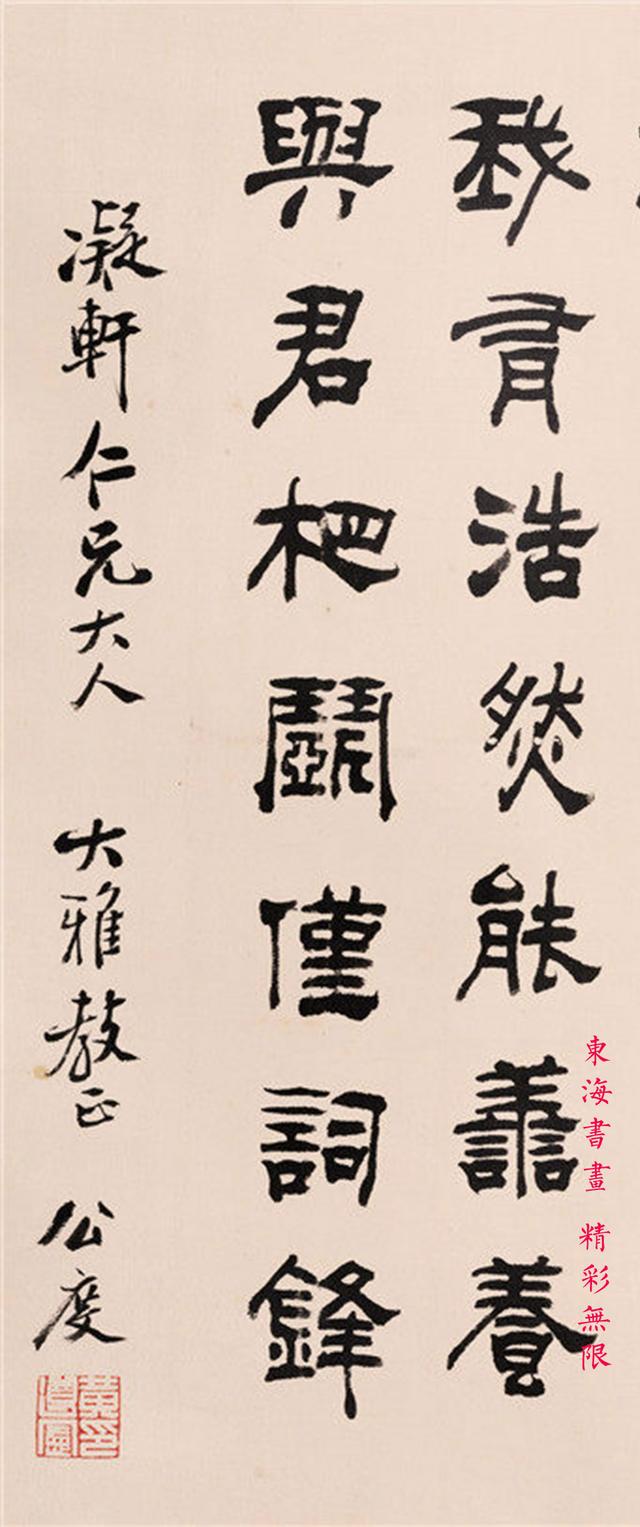 我有浩然能譱養
與君杷鬬僅詞鋒
凝軒仁兄大人 大雅教正 公度
黃印遵憲
東海書畫 精彩無限